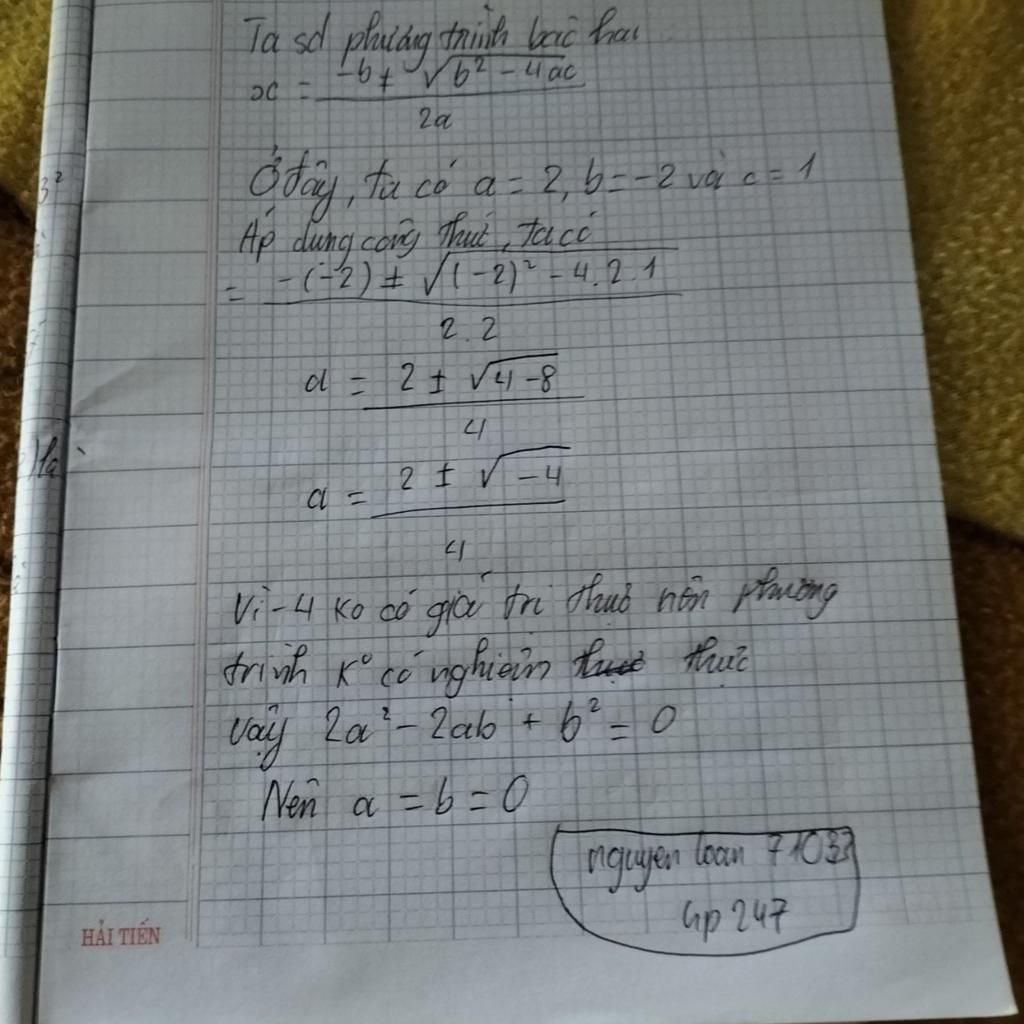 Ta sd phương trình bậc hai
x = -b ± √b² - 4ac
2a
Ở đây, ta có a = 2, b = -2 và c = 1
3²
Áp dụng công thức, ta có
= -(-2) ± √(-2)² - 4.2.1
2.2
a = 2 ± √4-8
4
a = 2 ± √-4
4
Vì -4 ko có giá trị thực nên phương
trình k° có nghiệm thực thực
Vậy 2a² - 2ab + b² = 0
Nên a = b = 0
nguyen loan 71033
Gp 247
HẢI TIẾN